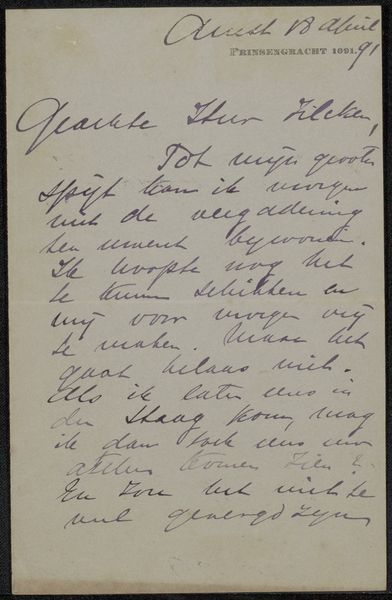 Amst 18 April
PRINSENGRACHT 1091.
91
Geachte Heer Zilcken,
Tot mijn groote
spijt kan ik morgen
niet de vergadering
ten uwent bywonen.
Ik hoopte nog het
te kunnen schikken en
mij voor morgen vrij
te maken. Maar het
gaat helaas niet.
Als ik later eens in
den Haag kom, mag
ik dan ook eens uw
atelier komen zien?
En zou het niet te
veel gevergd zijn